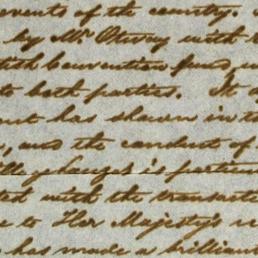 servants of the country.
by Mr. Otway with
British Convention fund
to both parties. It
has shown in th
, and the conduct of
is particu
ted with the transacti
e to Her Majesty's
has made a brilliant